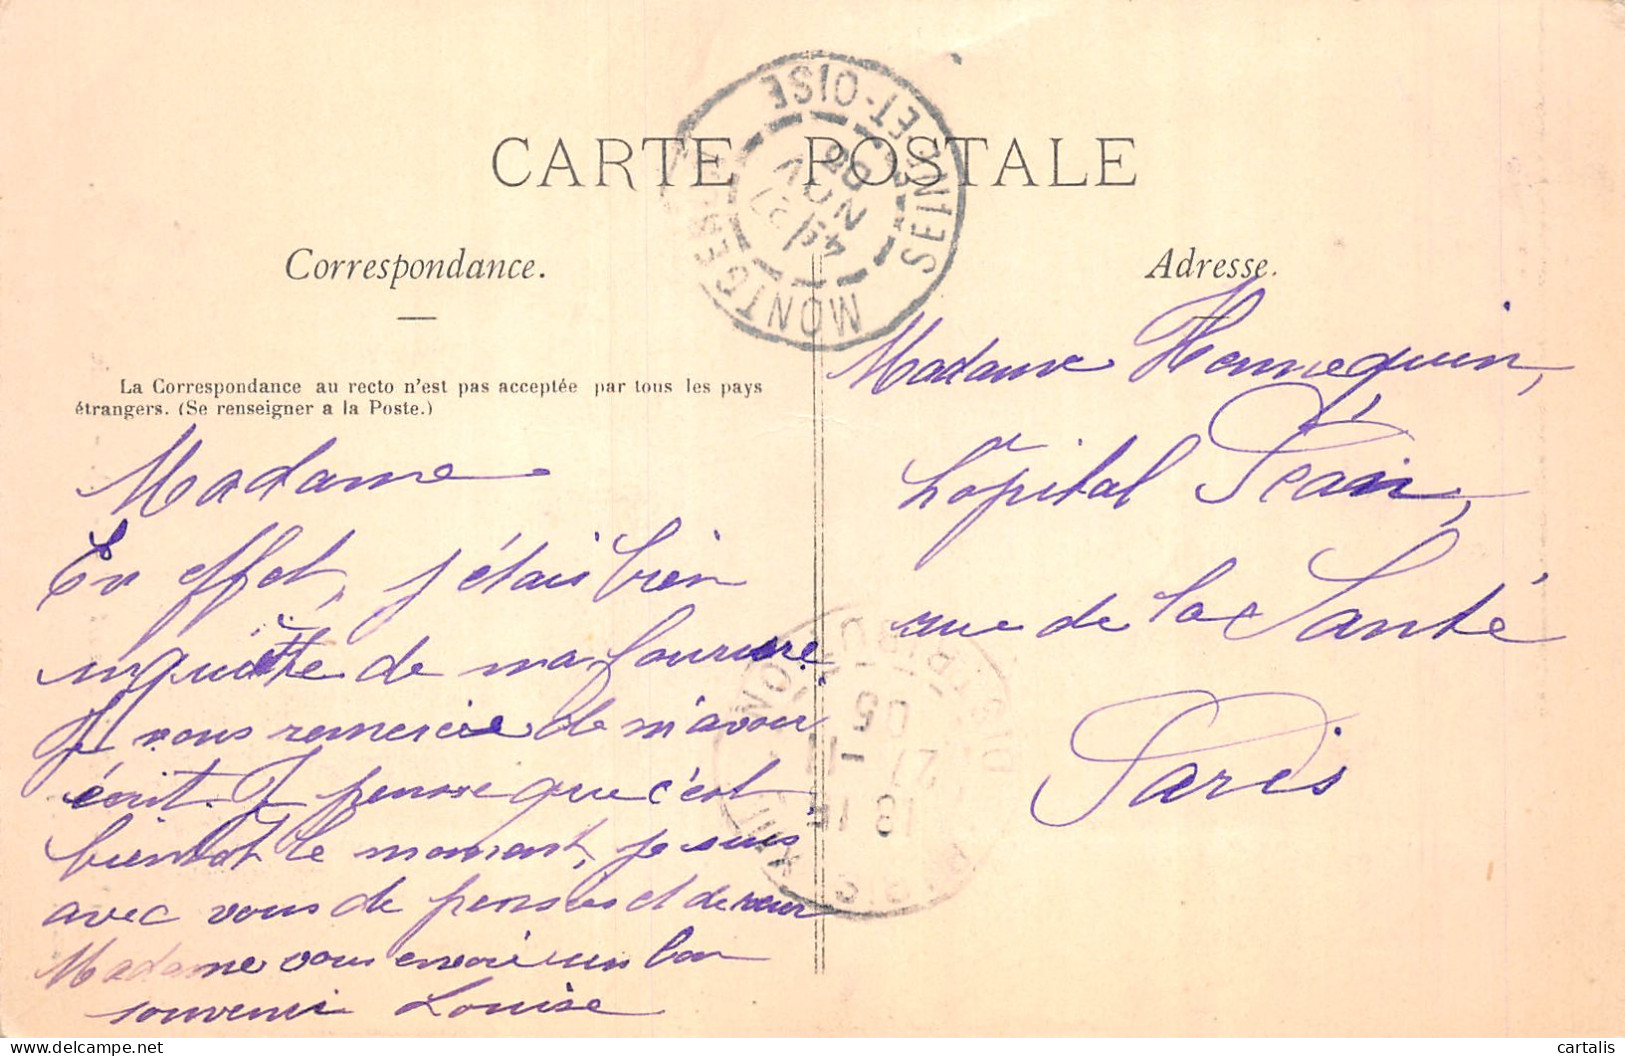 CARTE POSTALE
MONTGERON SEINE-ET-OISE
4E
27
NOV
05
Correspondance.
La Correspondance au recto n'est pas acceptée par tous les pays
étrangers. (Se renseigner a la Poste.)
Madame
En effet, j'étais bien
inquiète de ma fourrure
Je vous remercie de m'avoir
écrit. Je pensse que c'est
bientot le moment, je suis
avec vous de pensées et de cœur
Madame vous envoie un bon
souvenir Louise
Adresse.
Madame Hennequin,
hôpital Péan,
rue de la Santé
Paris
PARIS XIII DISTRIBUTION
18 15
27 - 11
05
cartalis